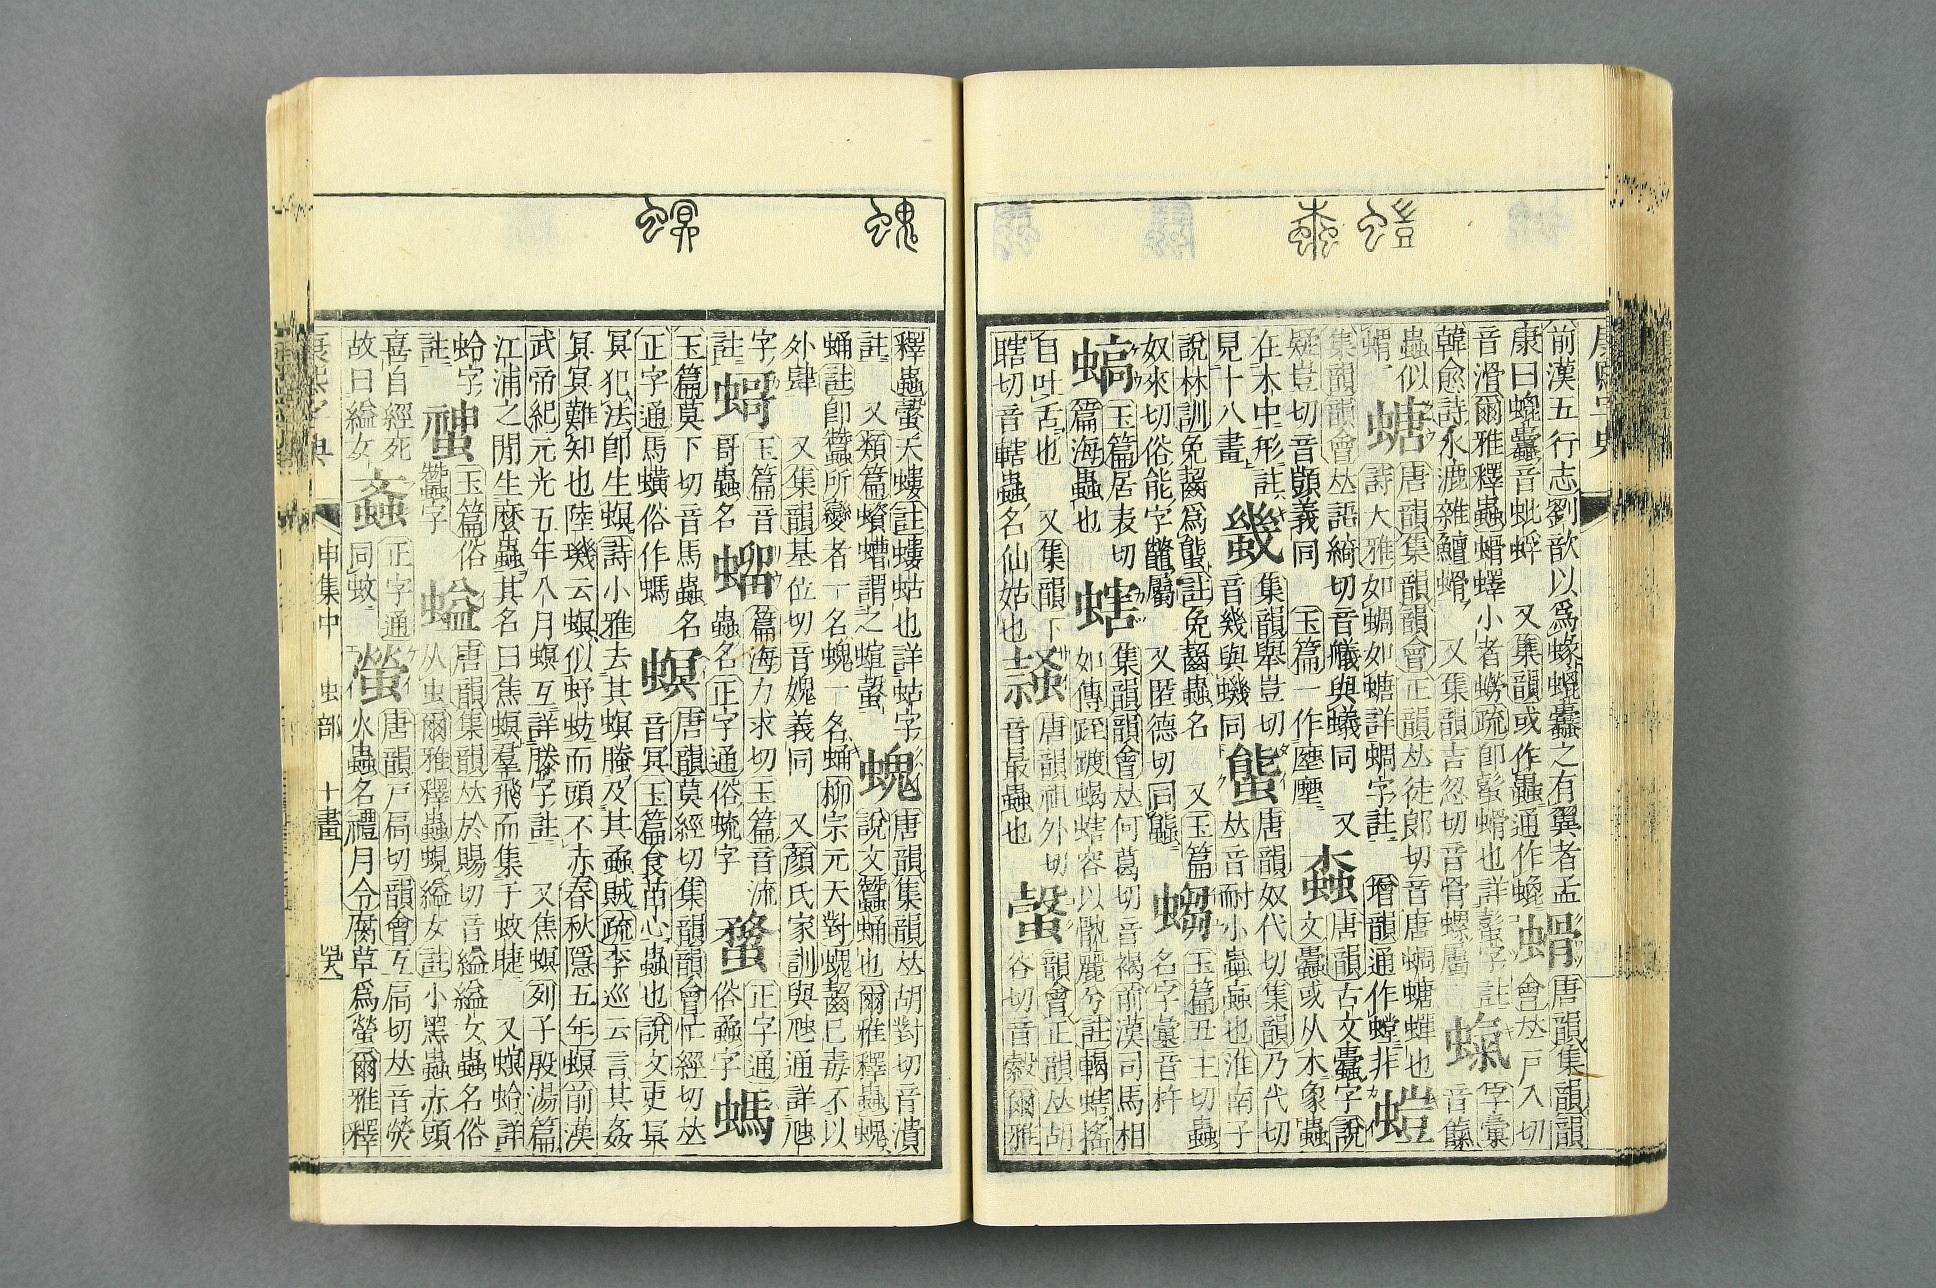 康熙字典
前漢五行志劉歆以爲蝝螕蠹之有翼者孟
康曰螕蠹音蚍蜉 又集韻或作
通作螕
螖
唐韻集韻韻
會𠀤戸八切
音滑爾雅釋蟲螖蠌小者蟧疏卽彭螖也詳蟚字註
韓愈詩水漉雜鱣螖 又集韻吉忽切音骨螺屬
𧏨
字彙
音
蟲似
蜎
螗
唐韻集韻韻會正韻𠀤徒郎切音唐蜩螗蟬也
詩大雅如蜩如螗詳蜩字註 增韻通作螳非
螘
集韻韻會𠀤語綺切音檥與蟻同 又
疑豈切音顗義同 玉篇一作
螙
唐韻古文蠹字說
文蠹或从木象蟲
在木中形註
見十八畫
𧏶
集韻舉豈切
音幾與蟣同
螚
唐韻奴代切集韻乃代切
𠀤音耐小蟲也淮南子
說林訓兔齧爲螚註兔齧蟲名 又玉篇
奴來切俗能字鼈屬 又匿德切同
𧏭
玉篇丑主切蟲
名字彙音杵
螛
集韻韻會𠀤何葛切音褐前漢司馬相
如傳跮踱螛容以骩麗兮註輵螛搖
螛切音轄蟲名仙姑也
𧎰
玉篇居表切
篇海蟲也
自吐舌也 又集韻下
唐韻祖外切
音最蟲也
螜
韻會正韻𠀤胡
谷切音縠爾雅
釋蟲螜天螻註螻蛄也詳蛄字
註 又類篇蠀螬謂之蝖螜
螝
唐韻集韻𠀤胡對切音潰
說文蠶蛹也爾雅釋蟲螝
蛹註卽蠶所變者一名螝一名蛹柳宗元天對螝齧已毒不以
外肆 又集韻基位切音媿義同 又顏氏家訓與虺通詳虺
字
註
𧎴
玉篇音
哥蟲名
𧏙
篇海力求切玉篇音流
蟲名正字通俗蜥字
螌
正字通
俗蝥字
螞
玉篇莫下切音馬蟲名
正字通馬蟥俗作螞
螟
唐韻莫經切集韻韻會忙經切𠀤
音冥玉篇食苗心蟲也說文吏冥
冥犯法卽生螟詩小雅去其螟螣及其蟊賊疏李巡云言其姦
冥冥難知也陸璣云螟似虸蚄而頭不赤春秋隱五年螟前漢
武帝紀元光五年八月螟互詳螣字註 又焦螟列子殷湯篇
江浦之閒生麽蟲其名曰焦螟羣飛而集于蚊睫 又螟蛉詳
蛉字
註
𧏾
玉篇俗
蠶字
螠
唐韻集韻𠀤於賜切音縊縊女蟲名俗
从虫爾雅釋蟲蜆縊女註小黑蟲赤頭
喜自經死
故曰縊女
螡
正字通
同蚊
螢
唐韻戸扃切韻會互扃切𠀤音熒
火蟲名禮月令腐草爲螢爾雅釋
康熙字典
申集中
虫部
十畫